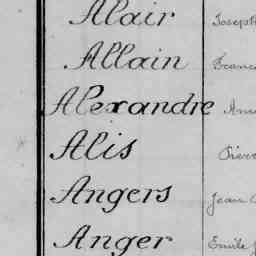 Alair Joseph
Allain Franc
Alexandre
Alis Pierr
Angers Jean
Anger Emile